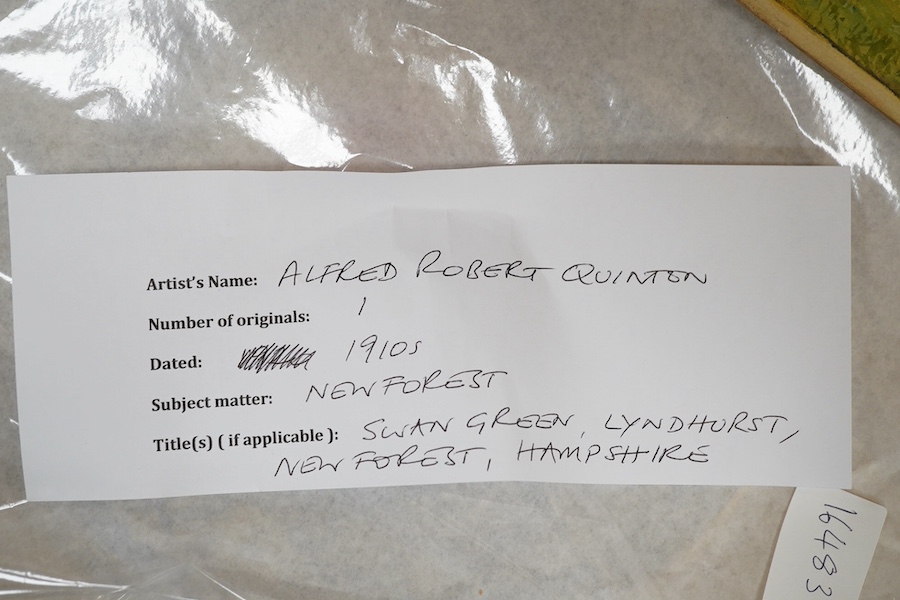 Artist's Name: ALFRED ROBERT QUINTON
Number of originals: 1
Dated: 1910s
Subject matter: NEW FOREST
Title(s) ( if applicable ): SWAN GREEN, LYNDHURST,
NEW FOREST, HAMPSHIRE
16483